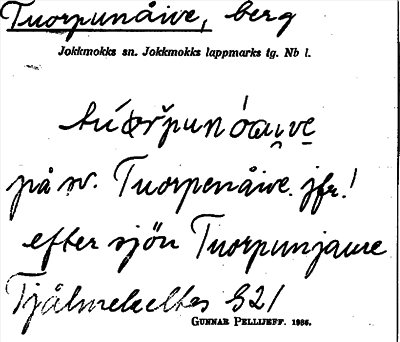 Tuorpunåive, berg
Jokkmokks sn. Jokkmokks lappmarks tg. Nb l.
på sv. Tuorpenåive. jfr!
efter sjön Tuorpunjaure
Tjålmekeltes 321
GUNNAR PELLIJEFF. 1936.